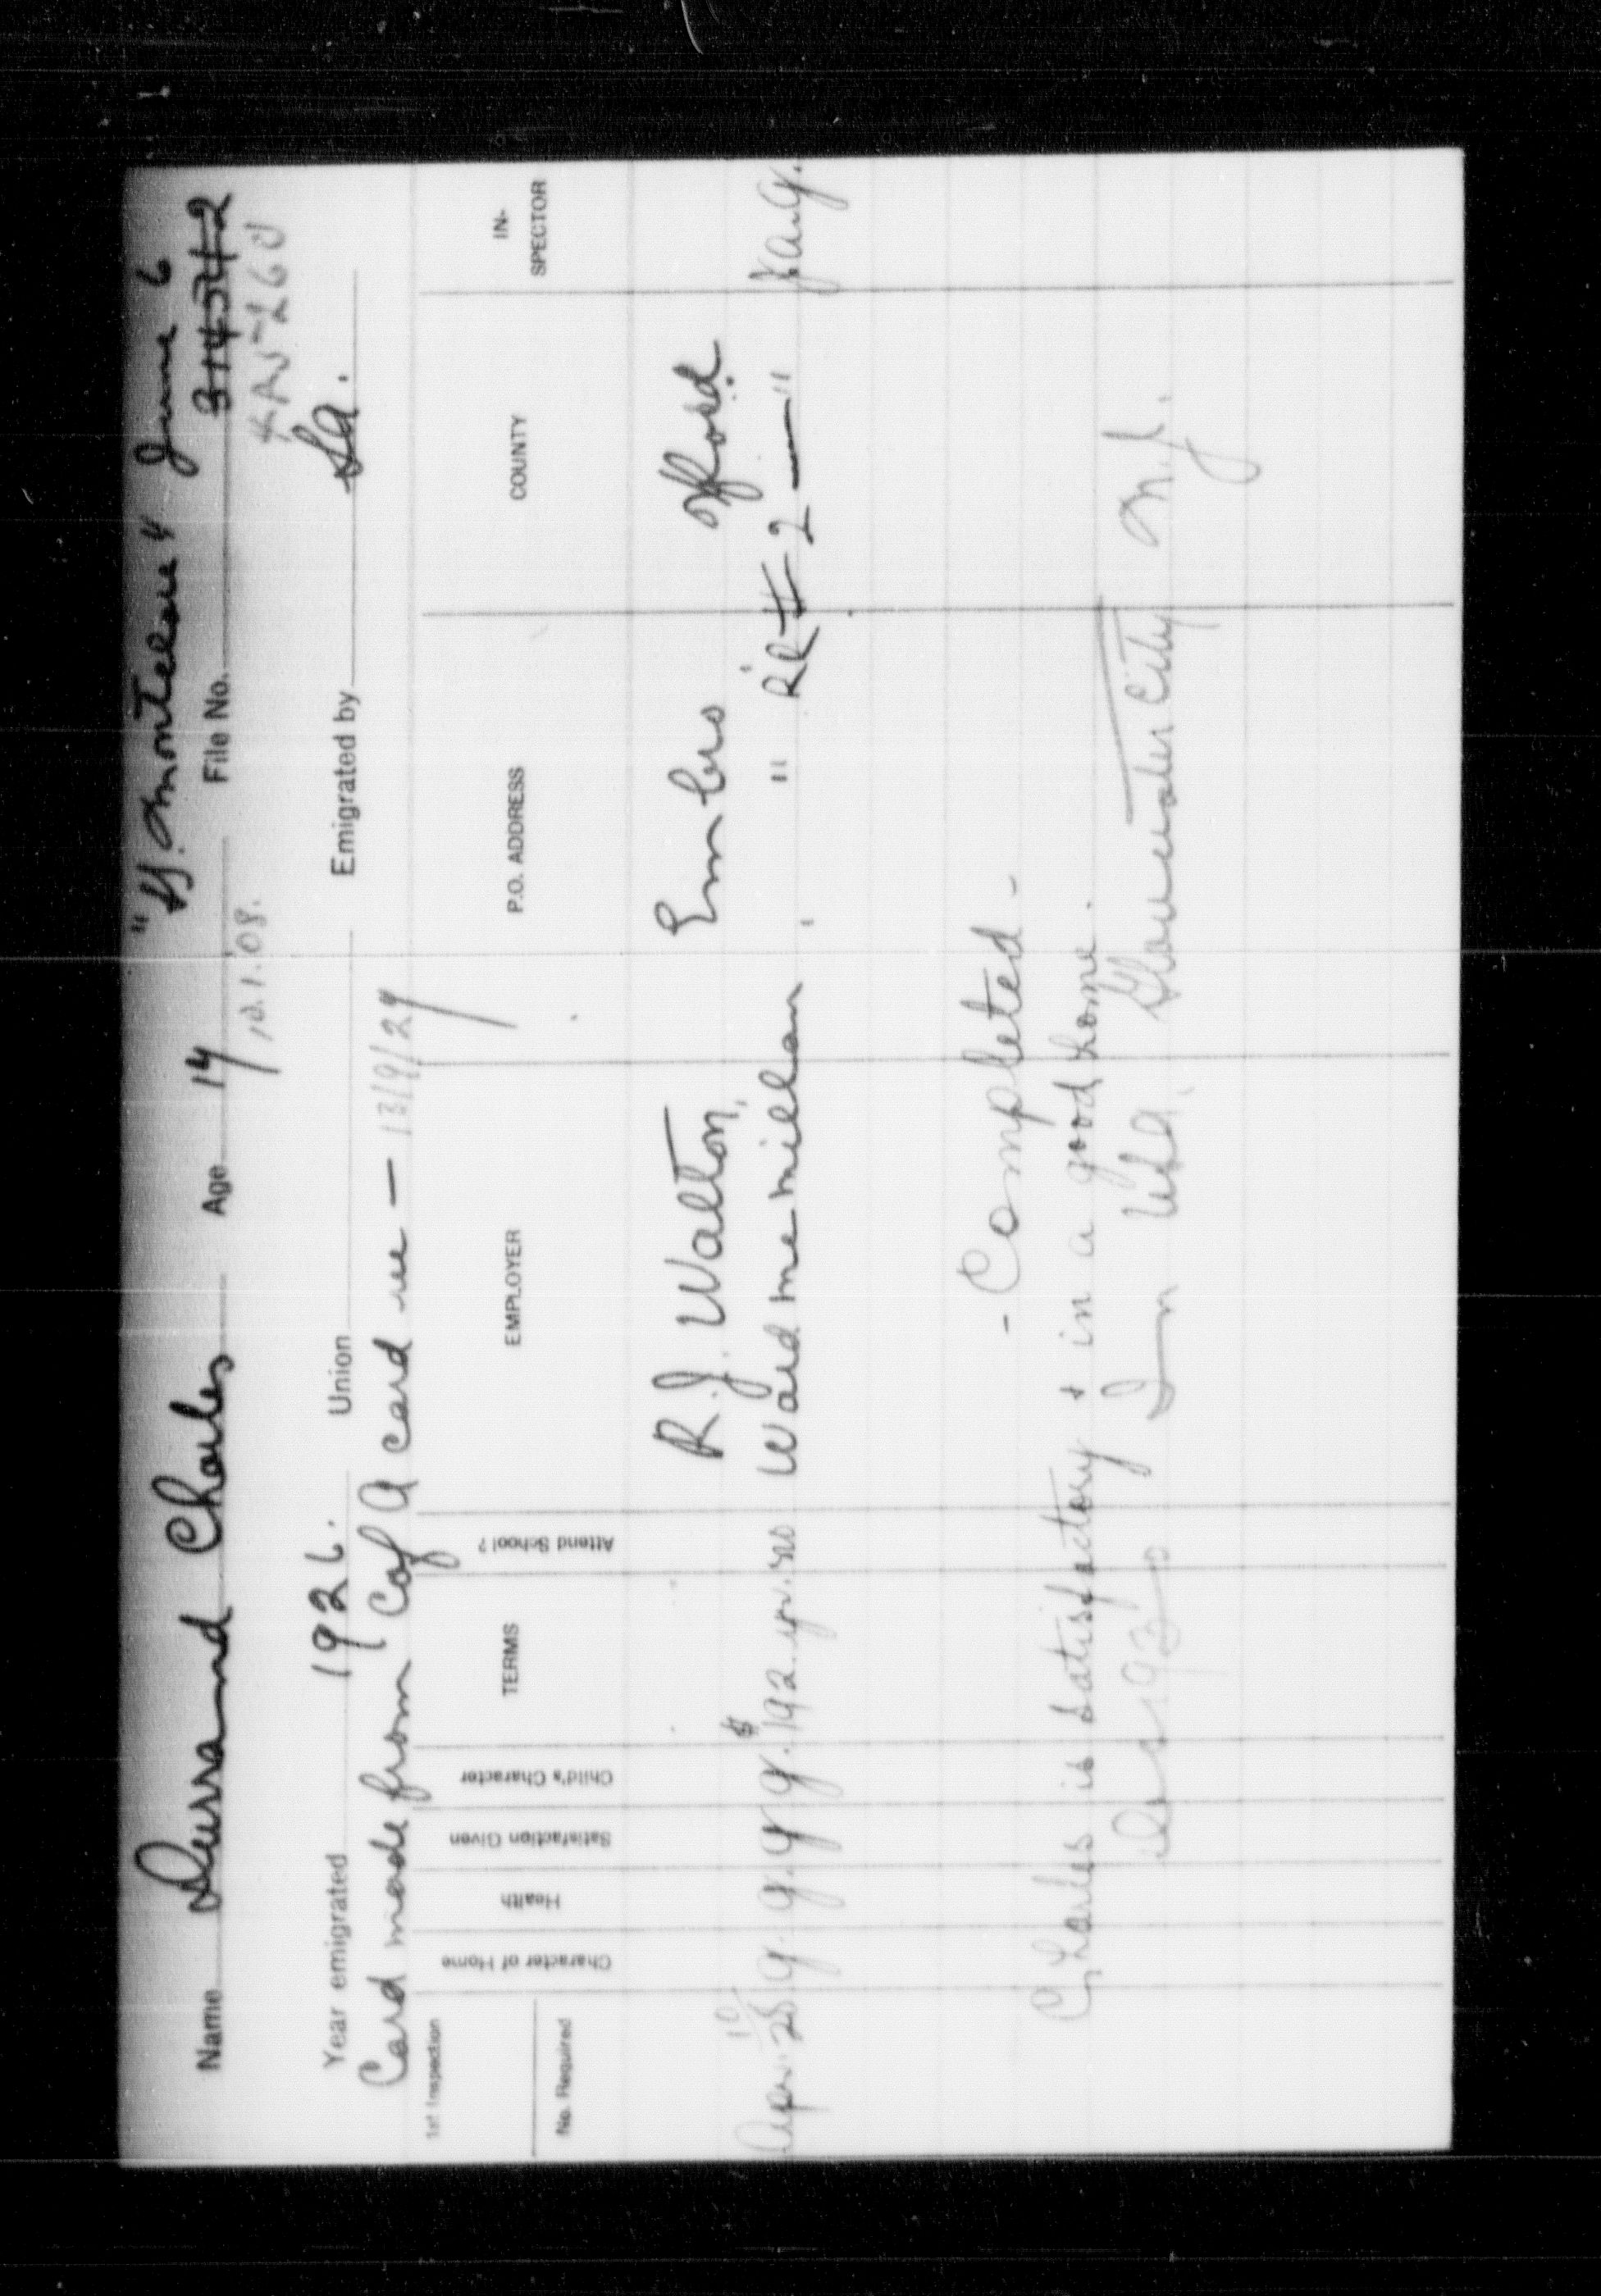 Name Durrand Charles Age 14 "SS. Montclare" June 6
10.1.'08. File No. 314542
Year emigrated 1926. Union Emigrated by SA.
Card made from C of A card use — 13/9/29
1st Inspection
No. Required
Character of Home Health Satisfaction Given Child's Character TERMS Attend School? EMPLOYER P.O. ADDRESS COUNTY IN-SPECTOR
R. J. Walton, Embro Oxford
Apr. 10/28 g. g. g. g. $192. yr. no Ward McMillan " RR #2 — "
- Completed -
Charles is satisfactory & in a good home.
In USA. Gloucester City N.J.